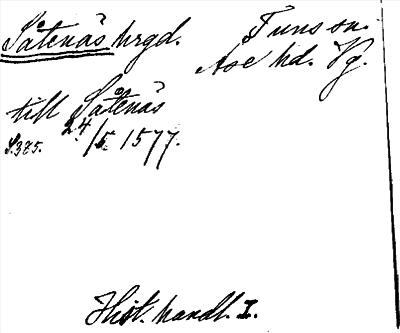 Såtenäs hrgd. Tuns sn.
Åse hd. Vg.
till Såtenäs
24/5 1577.
S.385.
Hist. handl. I.